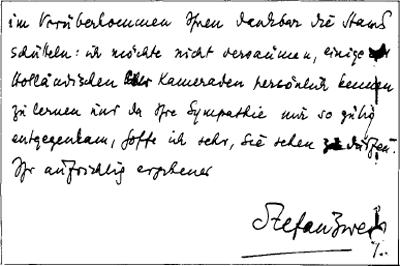 im Vorüberkommen Ihnen dankbar die Hand
schütteln: ich möchte nicht versäumen, einige
holländischen Kameraden persönlich kennen
zu lernen und da Ihre Sympathie mir so gütig
entgegenkam, hoffe ich sehr, Sie sehen zu dürfen.
Ihr aufrichtig ergebener
Stefan Zweig